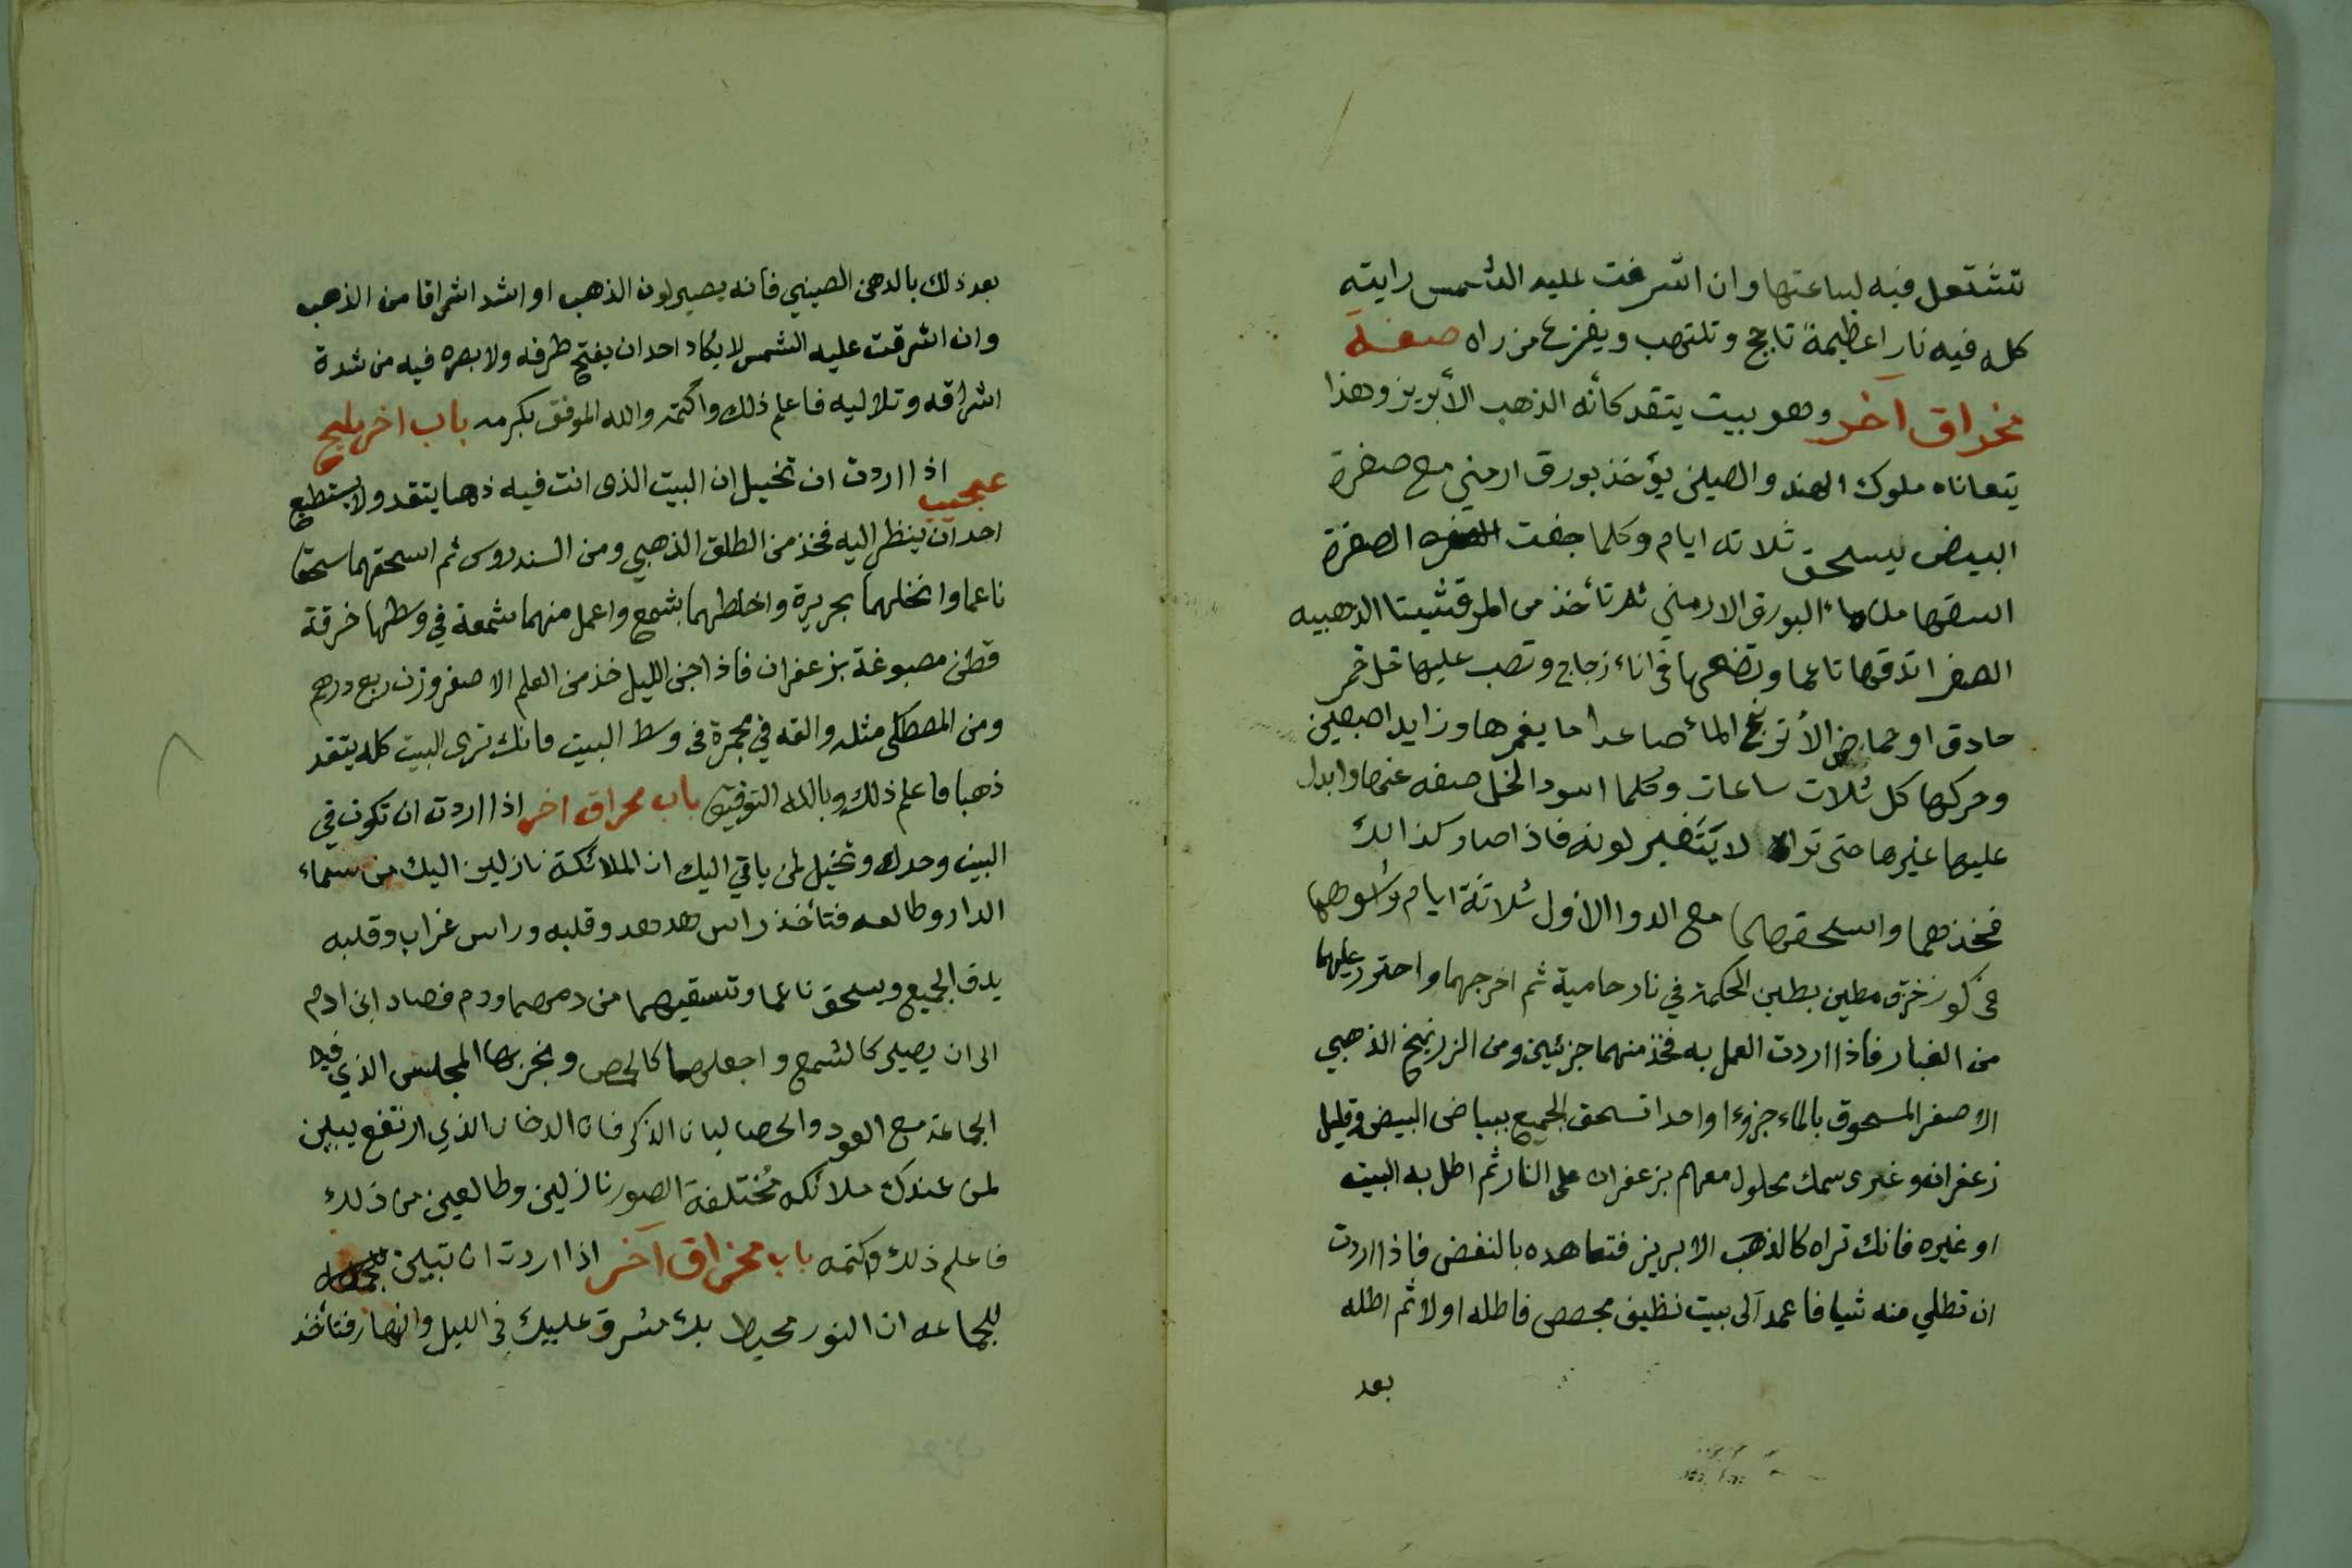 تشتعل فيه لساعتها وان اشرقت عليه الشمس رايته
كله فيه نارا عظيمة تاجج وتلتهب ويفزع من راه صفة
مخراق آخر وهو بيت يتقد كأنه الذهب الأبريز وهذا
يتعاناه ملوك الهند والصين يؤخذ بورق ارمني مع صفرة
البيض يسحق ثلاثه ايام وكلما جفت الصفرة
اسقها من ماء البورق الارمني ثم تأخذ من المرقشيتا الذهبيه
الصفرا تدقها ناعما وتضعها في اناء زجاج وتصب عليها خل خمر
حادق او حماض الأترنج المأ صاعدا ما يغمرها وزايد اصبعين
وحركها كل ثلاث ساعات وكلما اسود الخل صفه عنها وابدل
عليها غيرها حتى تراه لا يتغير لونه فاذا صار كذالك
فخذهما واسحقهما مع الدوا الاول ثلاثة ايام وشوهما
في كوز خزق مطين بطين الحكمة في نار حامية ثم اخرجهما واحترز عليهما
من الغبار فاذا اردت العمل به فخذ منهما جزئين ومن الزرنيخ الذهبي
الاصفر المسحوق بالماء جزوءا واحدا تسحق الجميع ببياض البيض وقليل
زعفران وغرى سمك محلول معهم بزعفران على النار ثم اطل به البيت
او غيره فانك تراه كالذهب الابريز فتعاهده بالنفض فاذا اردت
ان تطلي منه شيا فاعمد آلى بيت نظيف مجصص فاطله اولا ثم اطله
بعد
بعد ذلك بالدهن الصيني فانه يصير لون الذهب او اشد اشراقا من الذهب
وان اشرقت عليه الشمس لا يكاد احد ان يفتح طرفه ولا بصره فيه من شدة
اشراقه وتلاليه فاعلم ذلك واكتمه والله الموفق بكرمه باب اخر مليح
عجيب اذا اردت ان تخيل ان البيت الذى انت فيه ذهبا يتقد ولا يستطيع
احد ان ينظر اليه فخذ من الطلق الذهبي ومن السندروس ثم اسحقهما سحقا
ناعما وانخلهما بحريرة واخلطهما بشمع واعمل منهما شمعة في وسطها خرقة
قطن مصبوغة بزعفران فاذا جن الليل خذ من العلم الاصفر وزن ربع درهم
ومن المصطكى مثله والقه في مجمرة في وسط البيت فانك ترى البيت كله يتقد
ذهبا فاعلم ذلك وبالله التوفيق باب مخراق اخر اذا اردت ان تكون في
البيت وحدك وتخيل لمن ياتي اليك ان الملائكة نازلين اليك من سماء
الدار وطالعه فتأخذ راس هدهد وقلبه وراس غراب وقلبه
يدق الجميع ويسحق ناعما وتسقيهما من دمهما ودم فصاد ابن ادم
الى ان يصير كالشمع واجعلهما كالحمص وبخر بها المجلس الذي فيه
الجماعة مع العود والحصا لبان الذكر فان الدخان الذي ارتفع يبين
لمن عندك ملائكه مختلفة الصور نازلين وطالعين من ذلك
فاعلم ذلك واكتمه باب مخراق آخر اذا اردت ان تبين
للجماعه ان النور محيط بك مشرق عليك في الليل والنهار فتأخذ